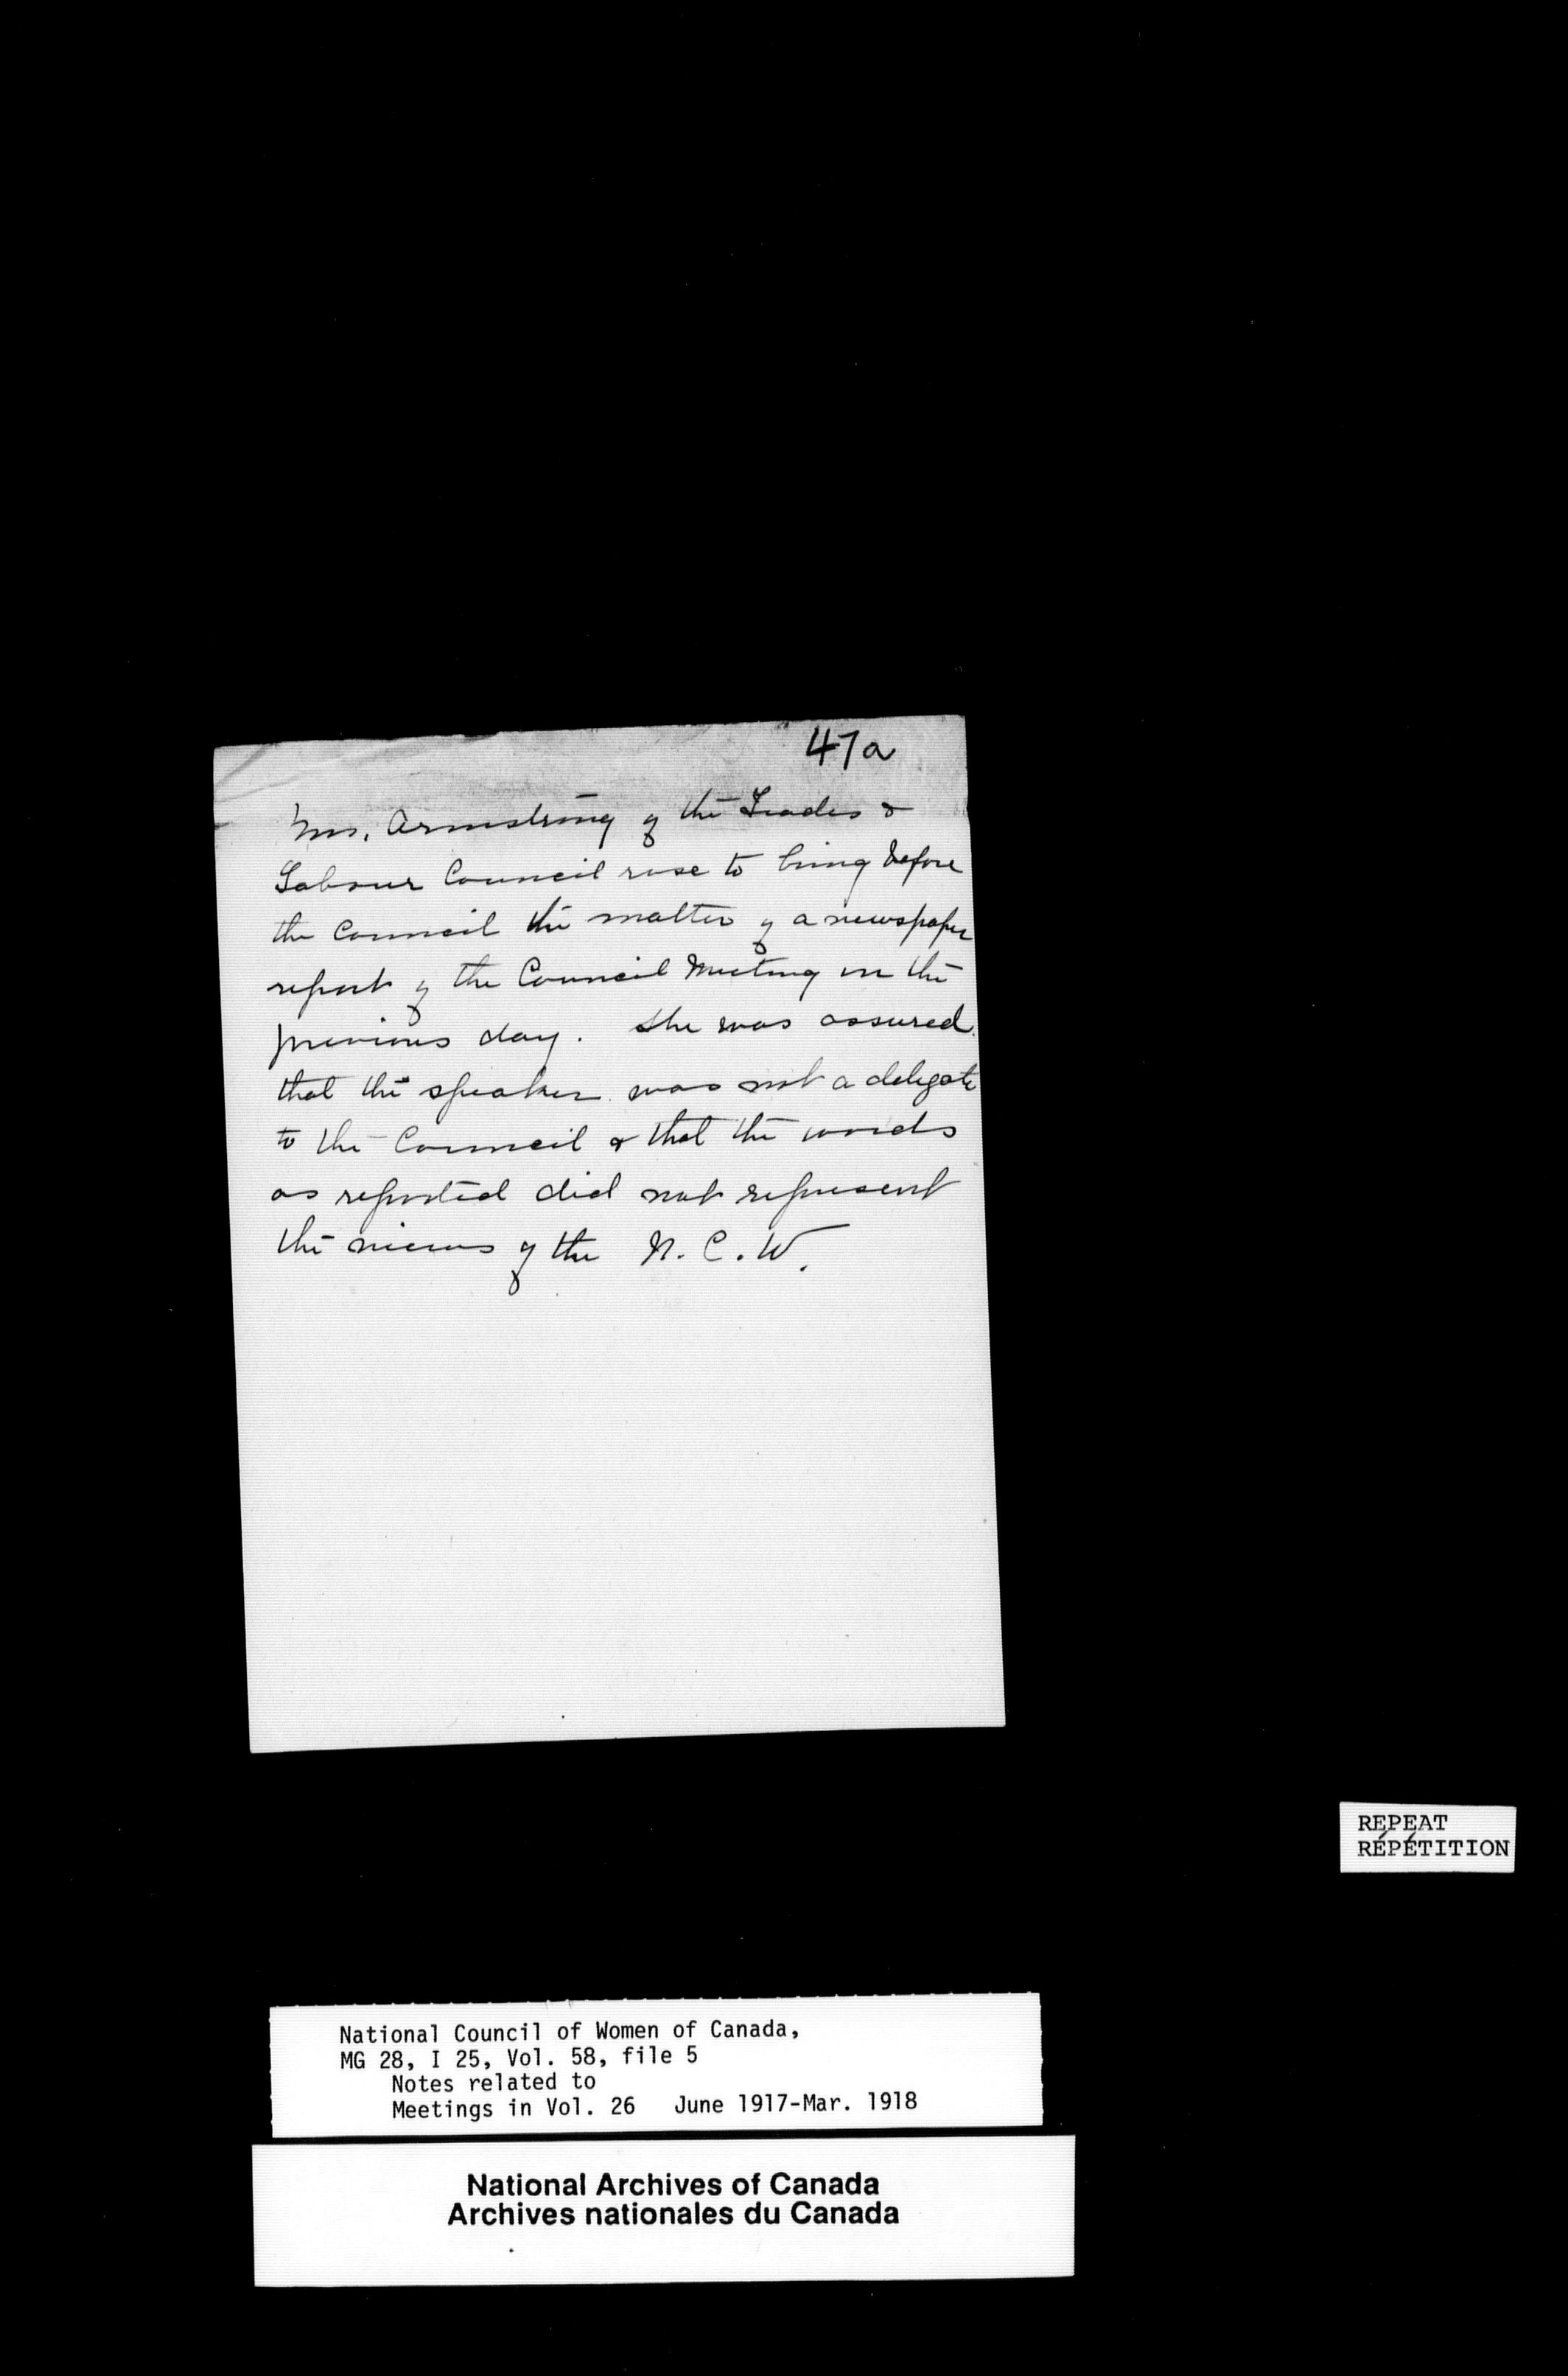 47a
Mrs. Armstrong of the Trades &
Labour Council rose to bring before
the Council the matter of a newspaper
report of the Council Meeting on the
previous day. She was assured
that the speaker was not a delegate
to the Council & that the words
as reported did not represent
the views of the N.C.W.
REPEAT
RÉPÉTITION
National Council of Women of Canada,
MG 28, I 25, Vol. 58, file 5
Notes related to
Meetings in Vol. 26 June 1917-Mar. 1918
National Archives of Canada
Archives nationales du Canada